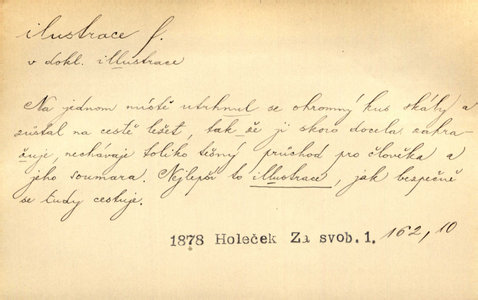 ilustrace f.
v dokl. illustrace
Na jednom místě utrhnul se ohromný kus skály a
zůstal na cestě ležet, tak že ji skoro docela zahra-
žuje, nechávaje toliko těsný průchod pro člověka a
jeho soumara. Nejlepší to illustrace, jak bezpečně
se tudy cestuje.
1878 Holeček Za svob. 1. 162, 10